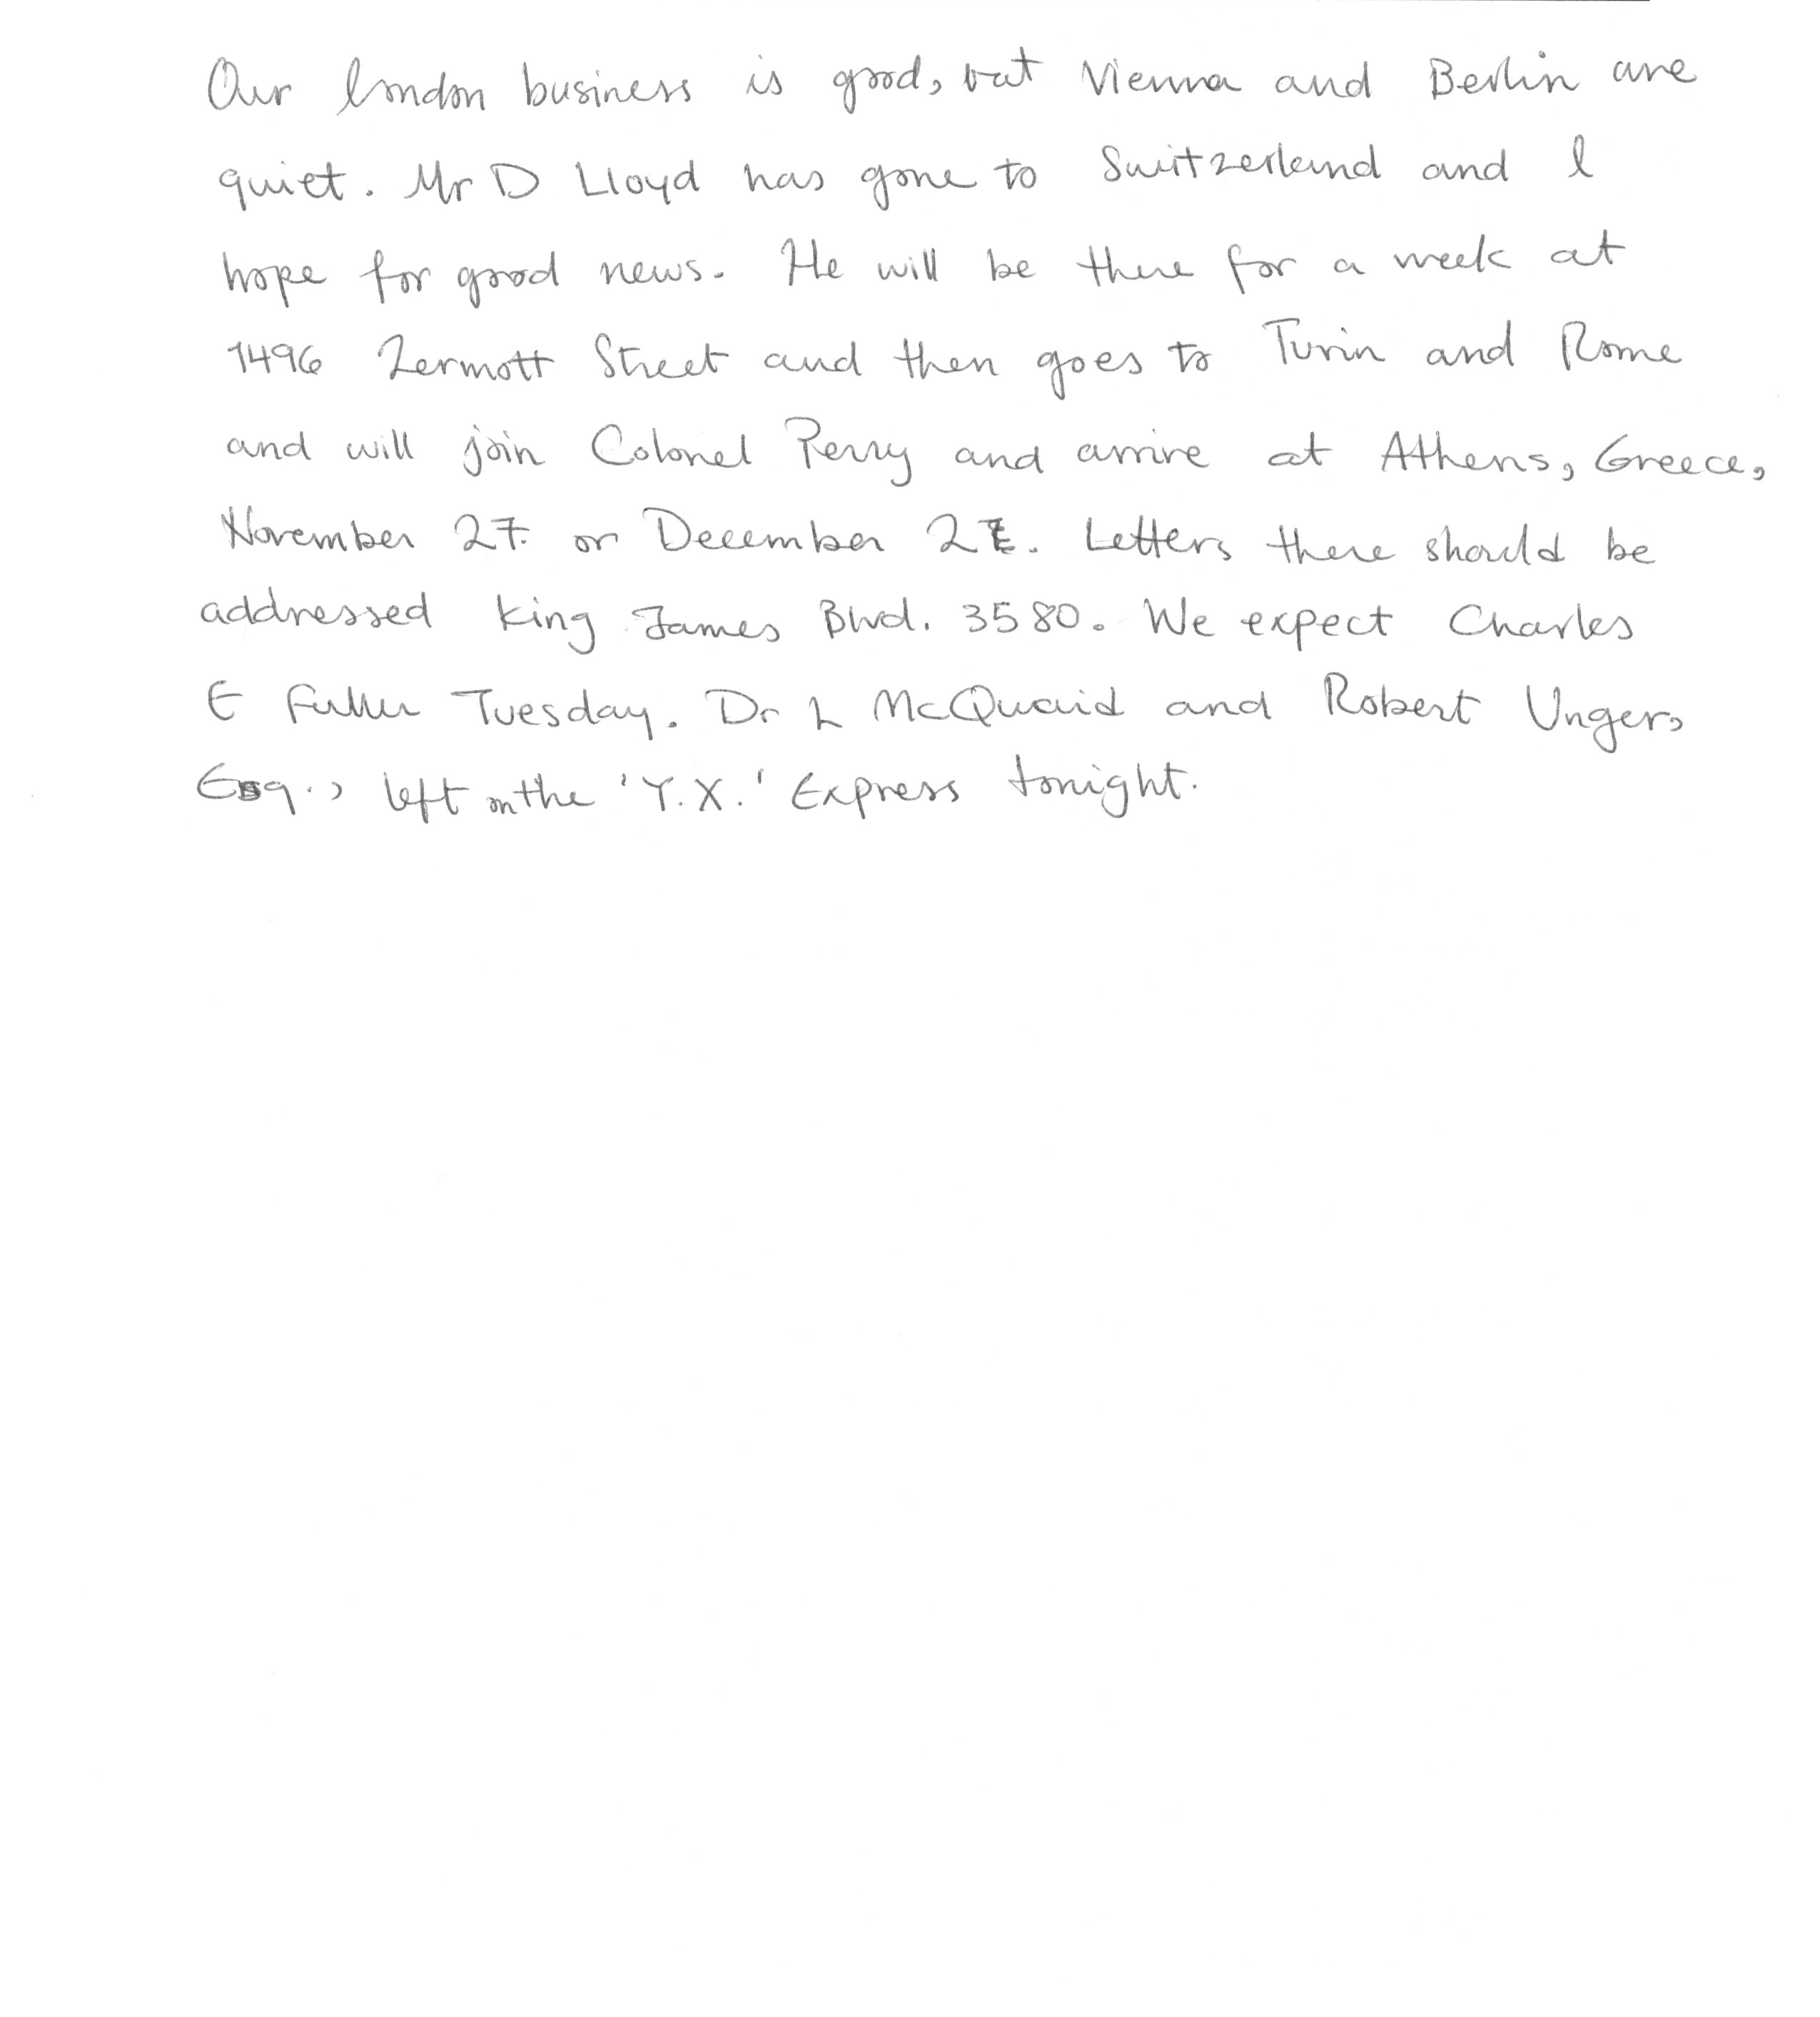 Our london business is good, but Vienna and Berlin are
quiet. Mr D Lloyd has gone to Switzerland and I
hope for good news. He will be there for a week at
1496 Zermott Street and then goes to Turin and Rome
and will join Colonel Perry and arrive at Athens, Greece,
November 27. or December 2. Letters there should be
addressed King James Blvd. 3580. We expect Charles
E Fuller Tuesday. Dr L McQuaid and Robert Unger,
Esq., left on the 'Y.X.' Express tonight.